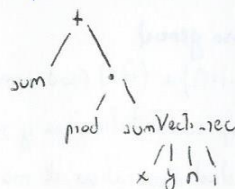 +
sum .
prod sumVect_rec
x y n i